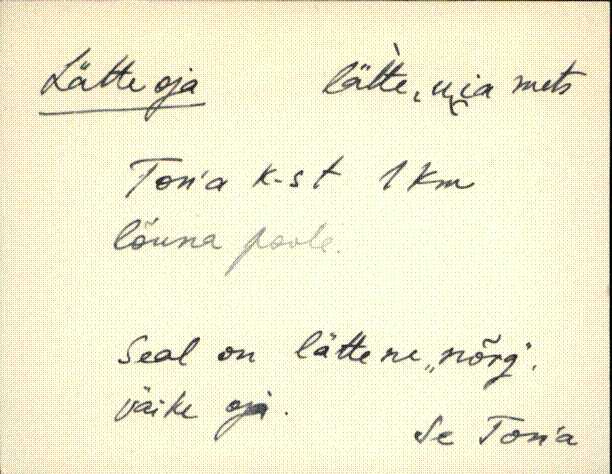 Lätte oja lätte, uia mets
Toŕia k-st 1 km
lõuna poole.
Seal on lättene "nõrg",
väike oja.
Se Toŕia